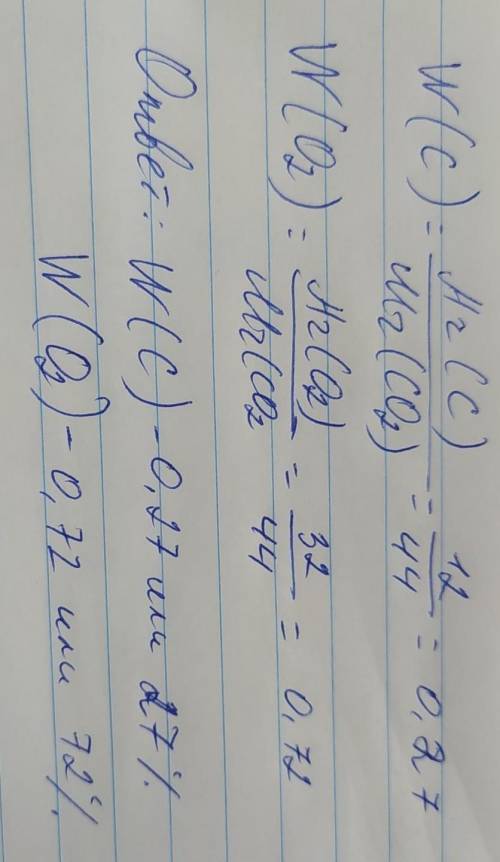 W(C) = Ar(C) / Mr(CO₂) = 12 / 44 = 0,27
W(O₂) = Ar(O₂) / Mr(CO₂ = 32 / 44 = 0,72
Ответ: W(C) - 0,27 или 27%
W(O₂) - 0,72 или 72%